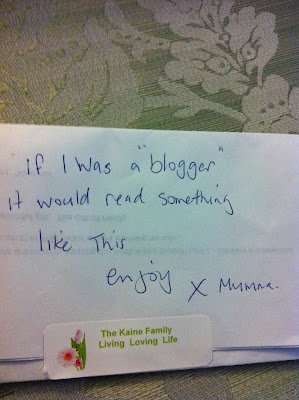 if I was a "blogger"
it would read something
like This
enjoy x Mumma.
The Kaine Family
Living Loving Life